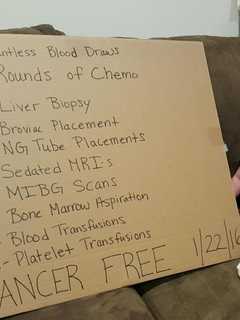 ntless Blood Draws
Rounds of Chemo
Liver Biopsy
Broviac Placement
NG Tube Placements
Sedated MRI's
MIBG Scans
Bone Marrow Aspiration
- Blood Transfusions
- Platelet Transfusions
ANCER FREE 1/22/16